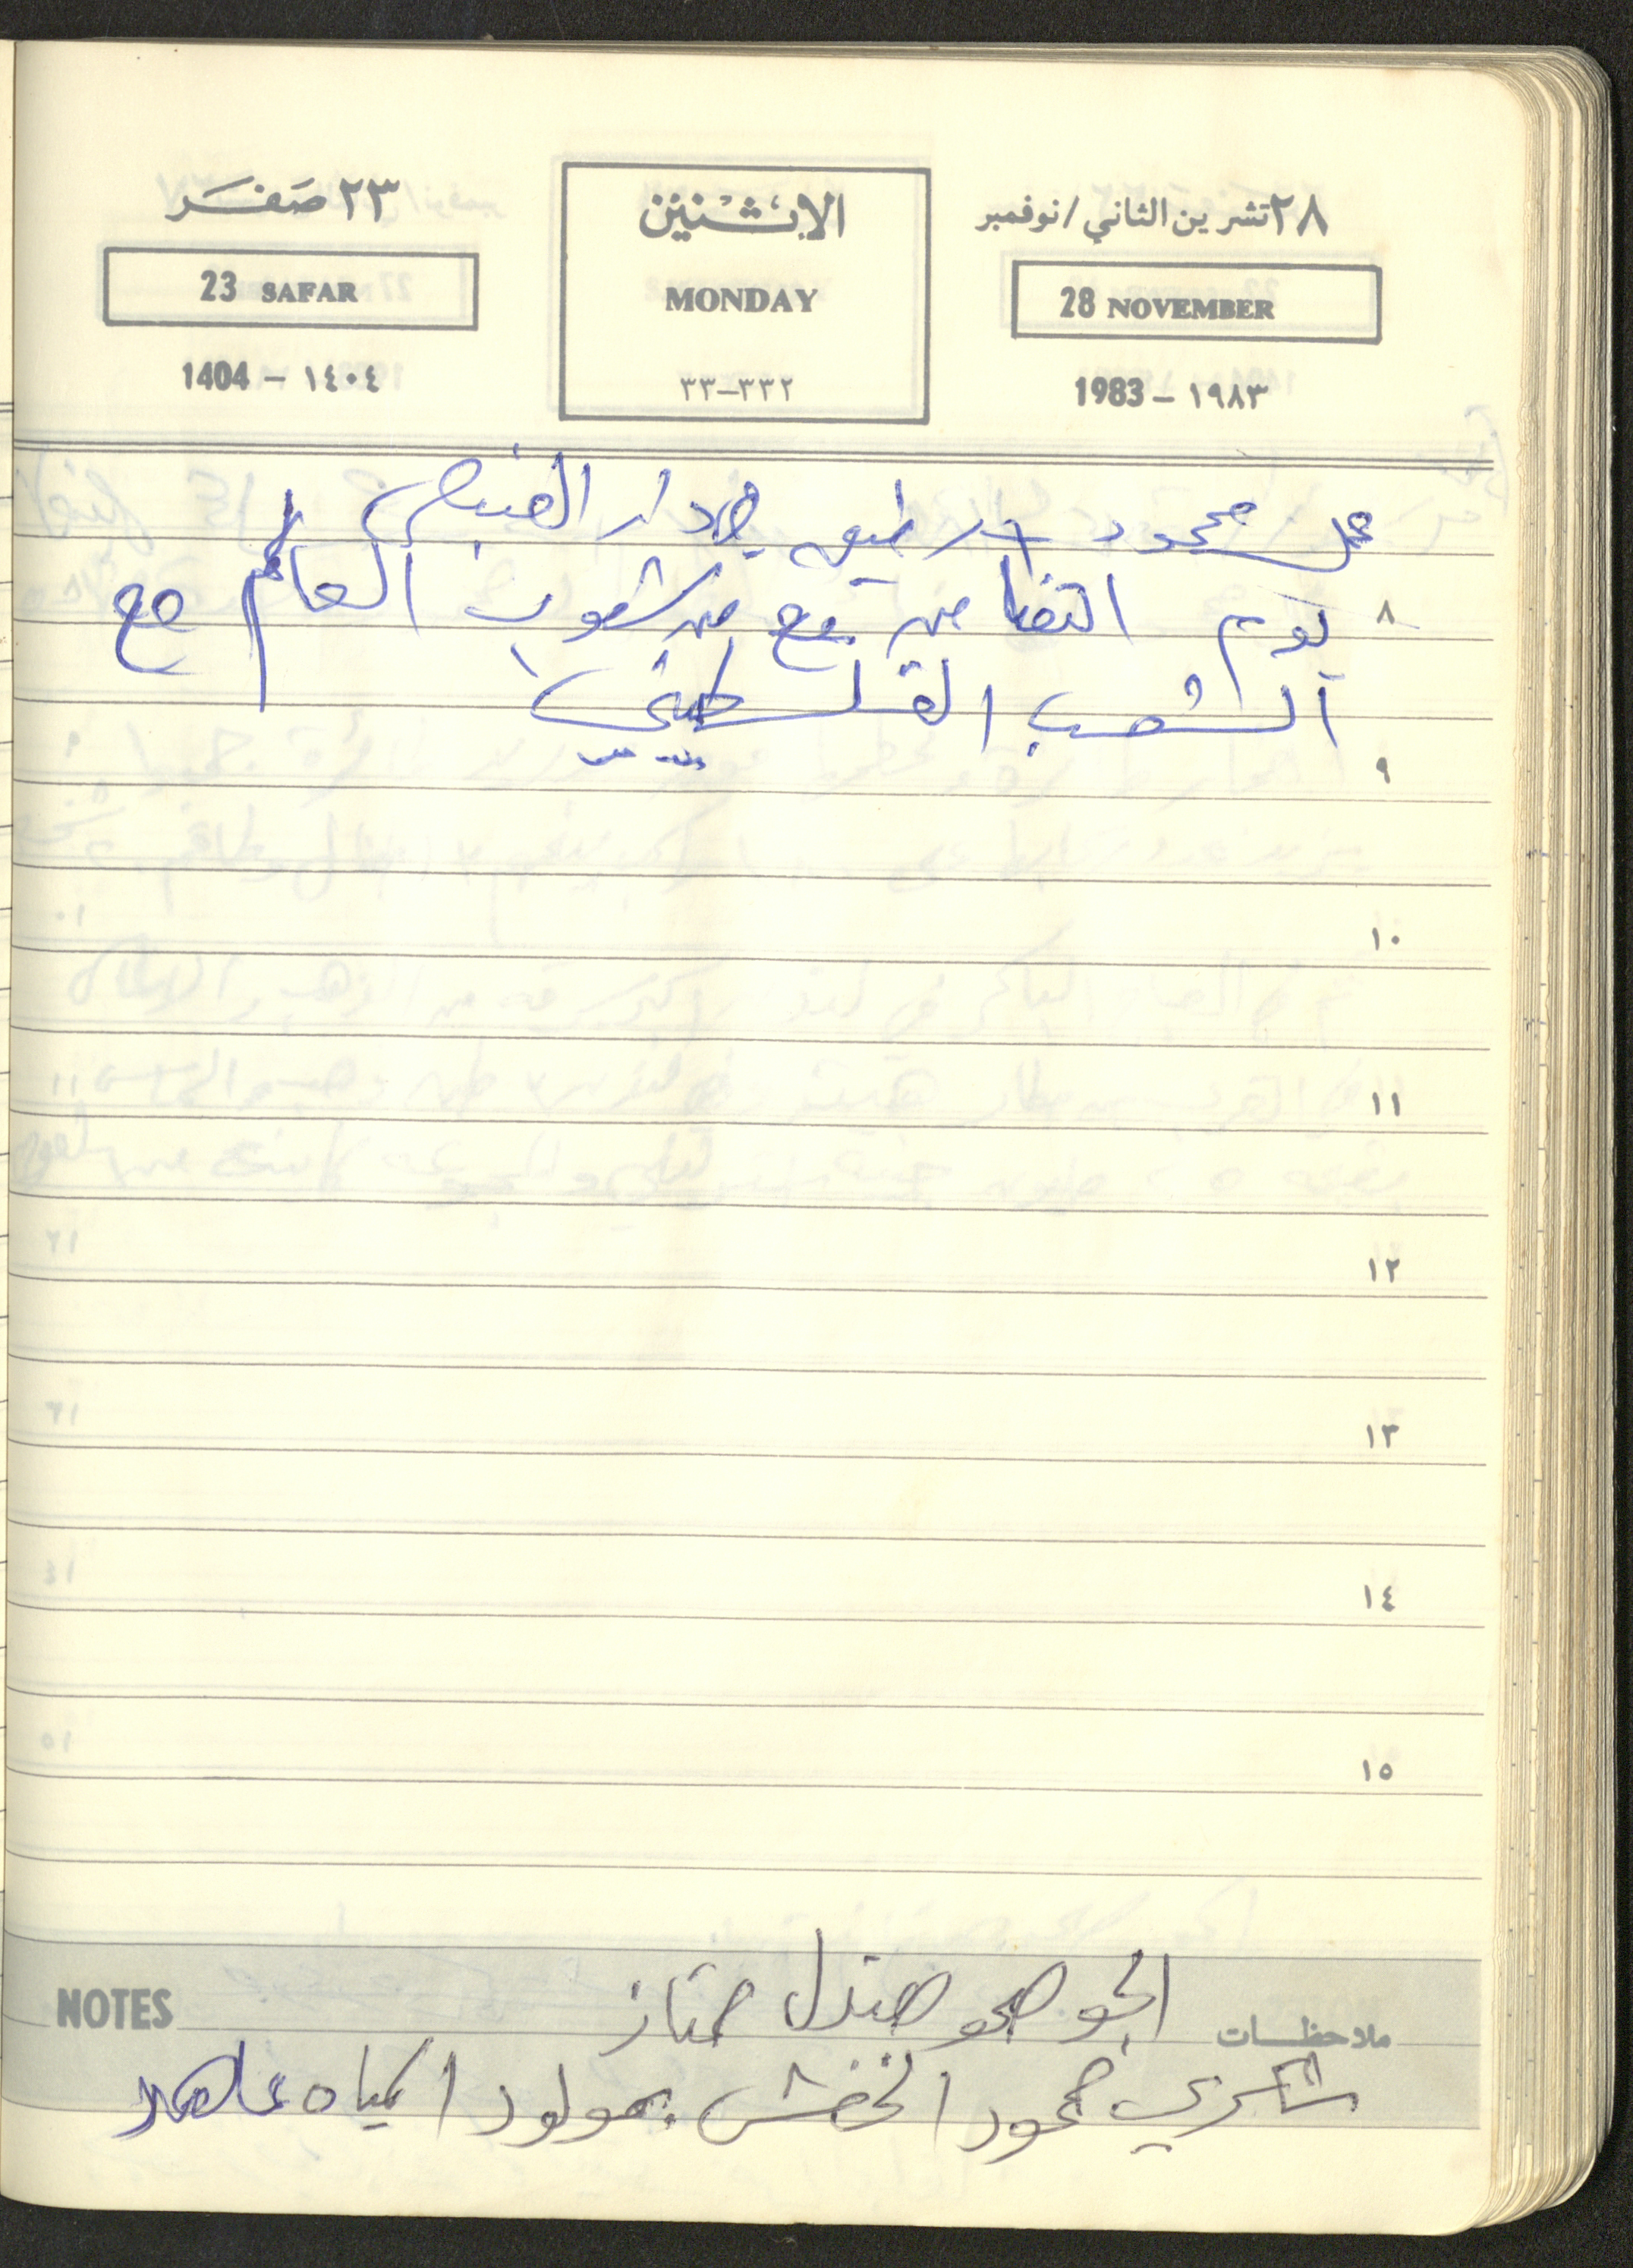 ٢٨ تشرين الثاني/نوفمبر
28 NOVEMBER
1983 - ١٩٨٣
الاثنين
MONDAY
٣٣-٣٣٢
٢٣ صفر
23 SAFAR
1404 - ١٤٠٤
محمود دار
٨ يوم التضامن مع من شعوب العالم مع
الشعب الفلسطيني
٩
١٠
١١
١٢
١٣
١٤
١٥
ملاحظات الجو صحو معتدل ممتاز NOTES
شكري محمود الخفش بمولود اسماه